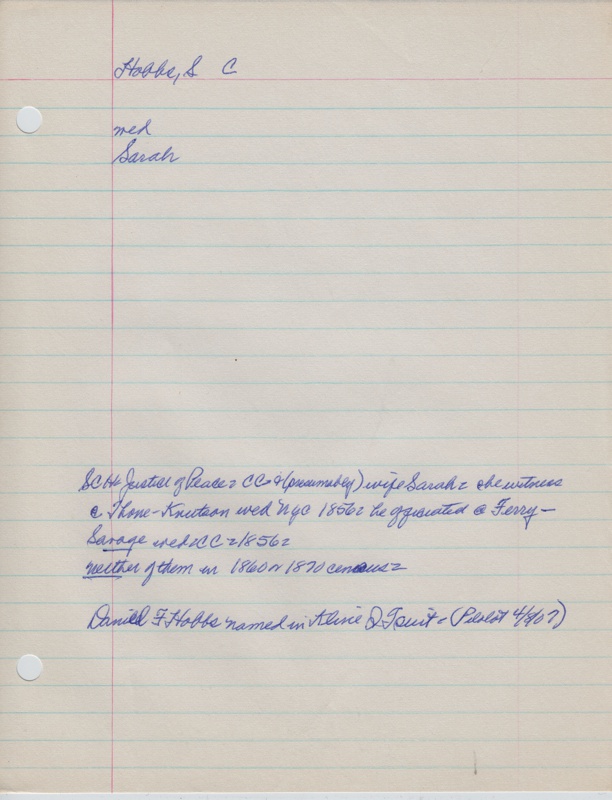 Hobbs, S C
wed
Sarah
SCH= Justice of Peace= CCo & (presumabley) wife Sarah= she witness
@ Thone-Knutson wed NyC 1856= he officiated @ Ferry-
Savage wed=CC=1856=
neither of them in 1860 or 1870 census=
Daniel F Hobbs named in Q T suit= (Pilot 4/9/07)